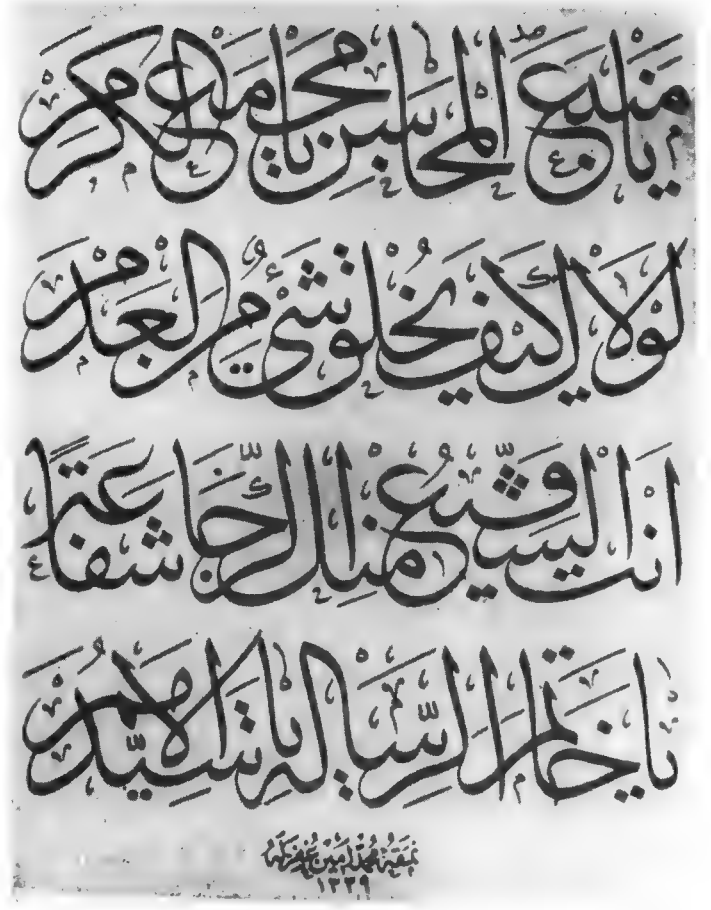 يا منبع المحاسن يا مجمع الكرم
لولاك كيف يخلق شئ من العدم
انت الشفيع الرجا شفاعة
يا خاتم الرسالة يا سيد الامم
نمقه محمد امين غفر له
١٣٣٩